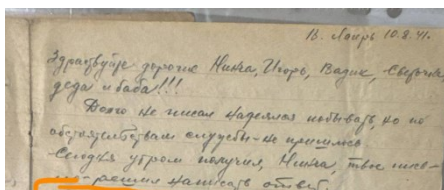 В. Локрь 10.8.41.
Здравствуйте дорогие Нинча, Игорь, Вадик, Светочка
деда и баба!!!
Долго не писал надеялся побывать, но по
обстоятельствам службы - не пришлось
Сегодня утром получил, Нинча, твое пись-
мо - решил написать ответ.